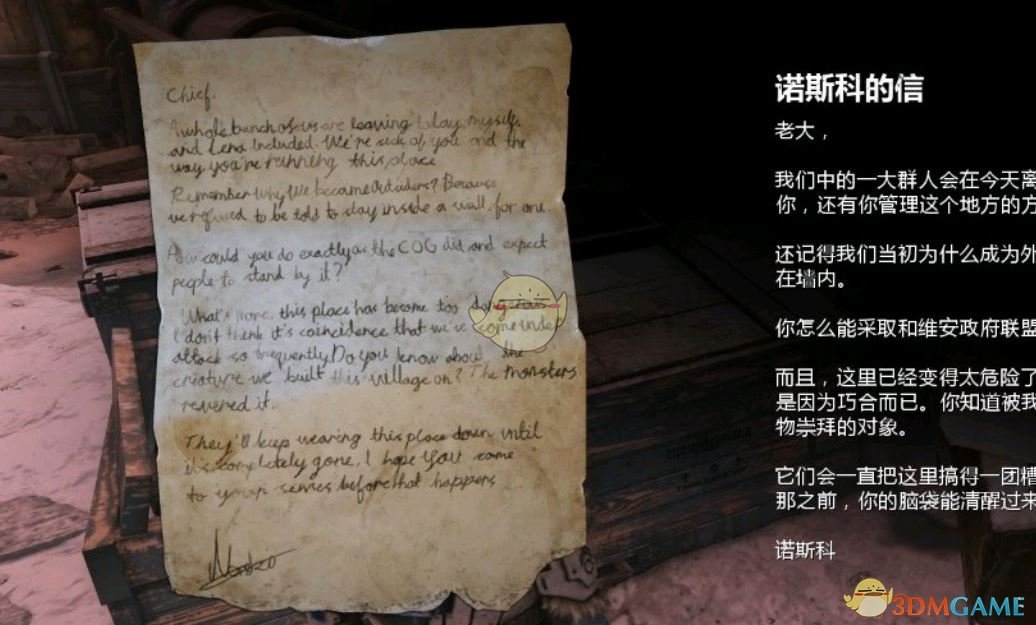 Chief.
A whole bunch of us are leaving today, myself
and Lena included. We're sick of you and the
way you're running this place
Remember why we became Outsiders? Because
we refused to be told to stay inside a wall, for one.
How could you do exactly as the COG did and expect
people to stand by it?
What's more, this place has become too
I don't think it's coincidence that we've come under
attack so frequently. Do you know about the
creature we built this village on? The monsters
revered it.
They'll keep wearing this place down until
it's completely gone. I hope you come
to your senses before that happens
诺斯科的信
老大，
我们中的一大群人会在今天离
你，还有你管理这个地方的方
还记得我们当初为什么成为外
在墙内。
你怎么能采取和维安政府联盟
而且，这里已经变得太危险了
是因为巧合而已。你知道被我
物崇拜的对象。
它们会一直把这里搞得一团糟
那之前，你的脑袋能清醒过来
诺斯科
3DMGAME